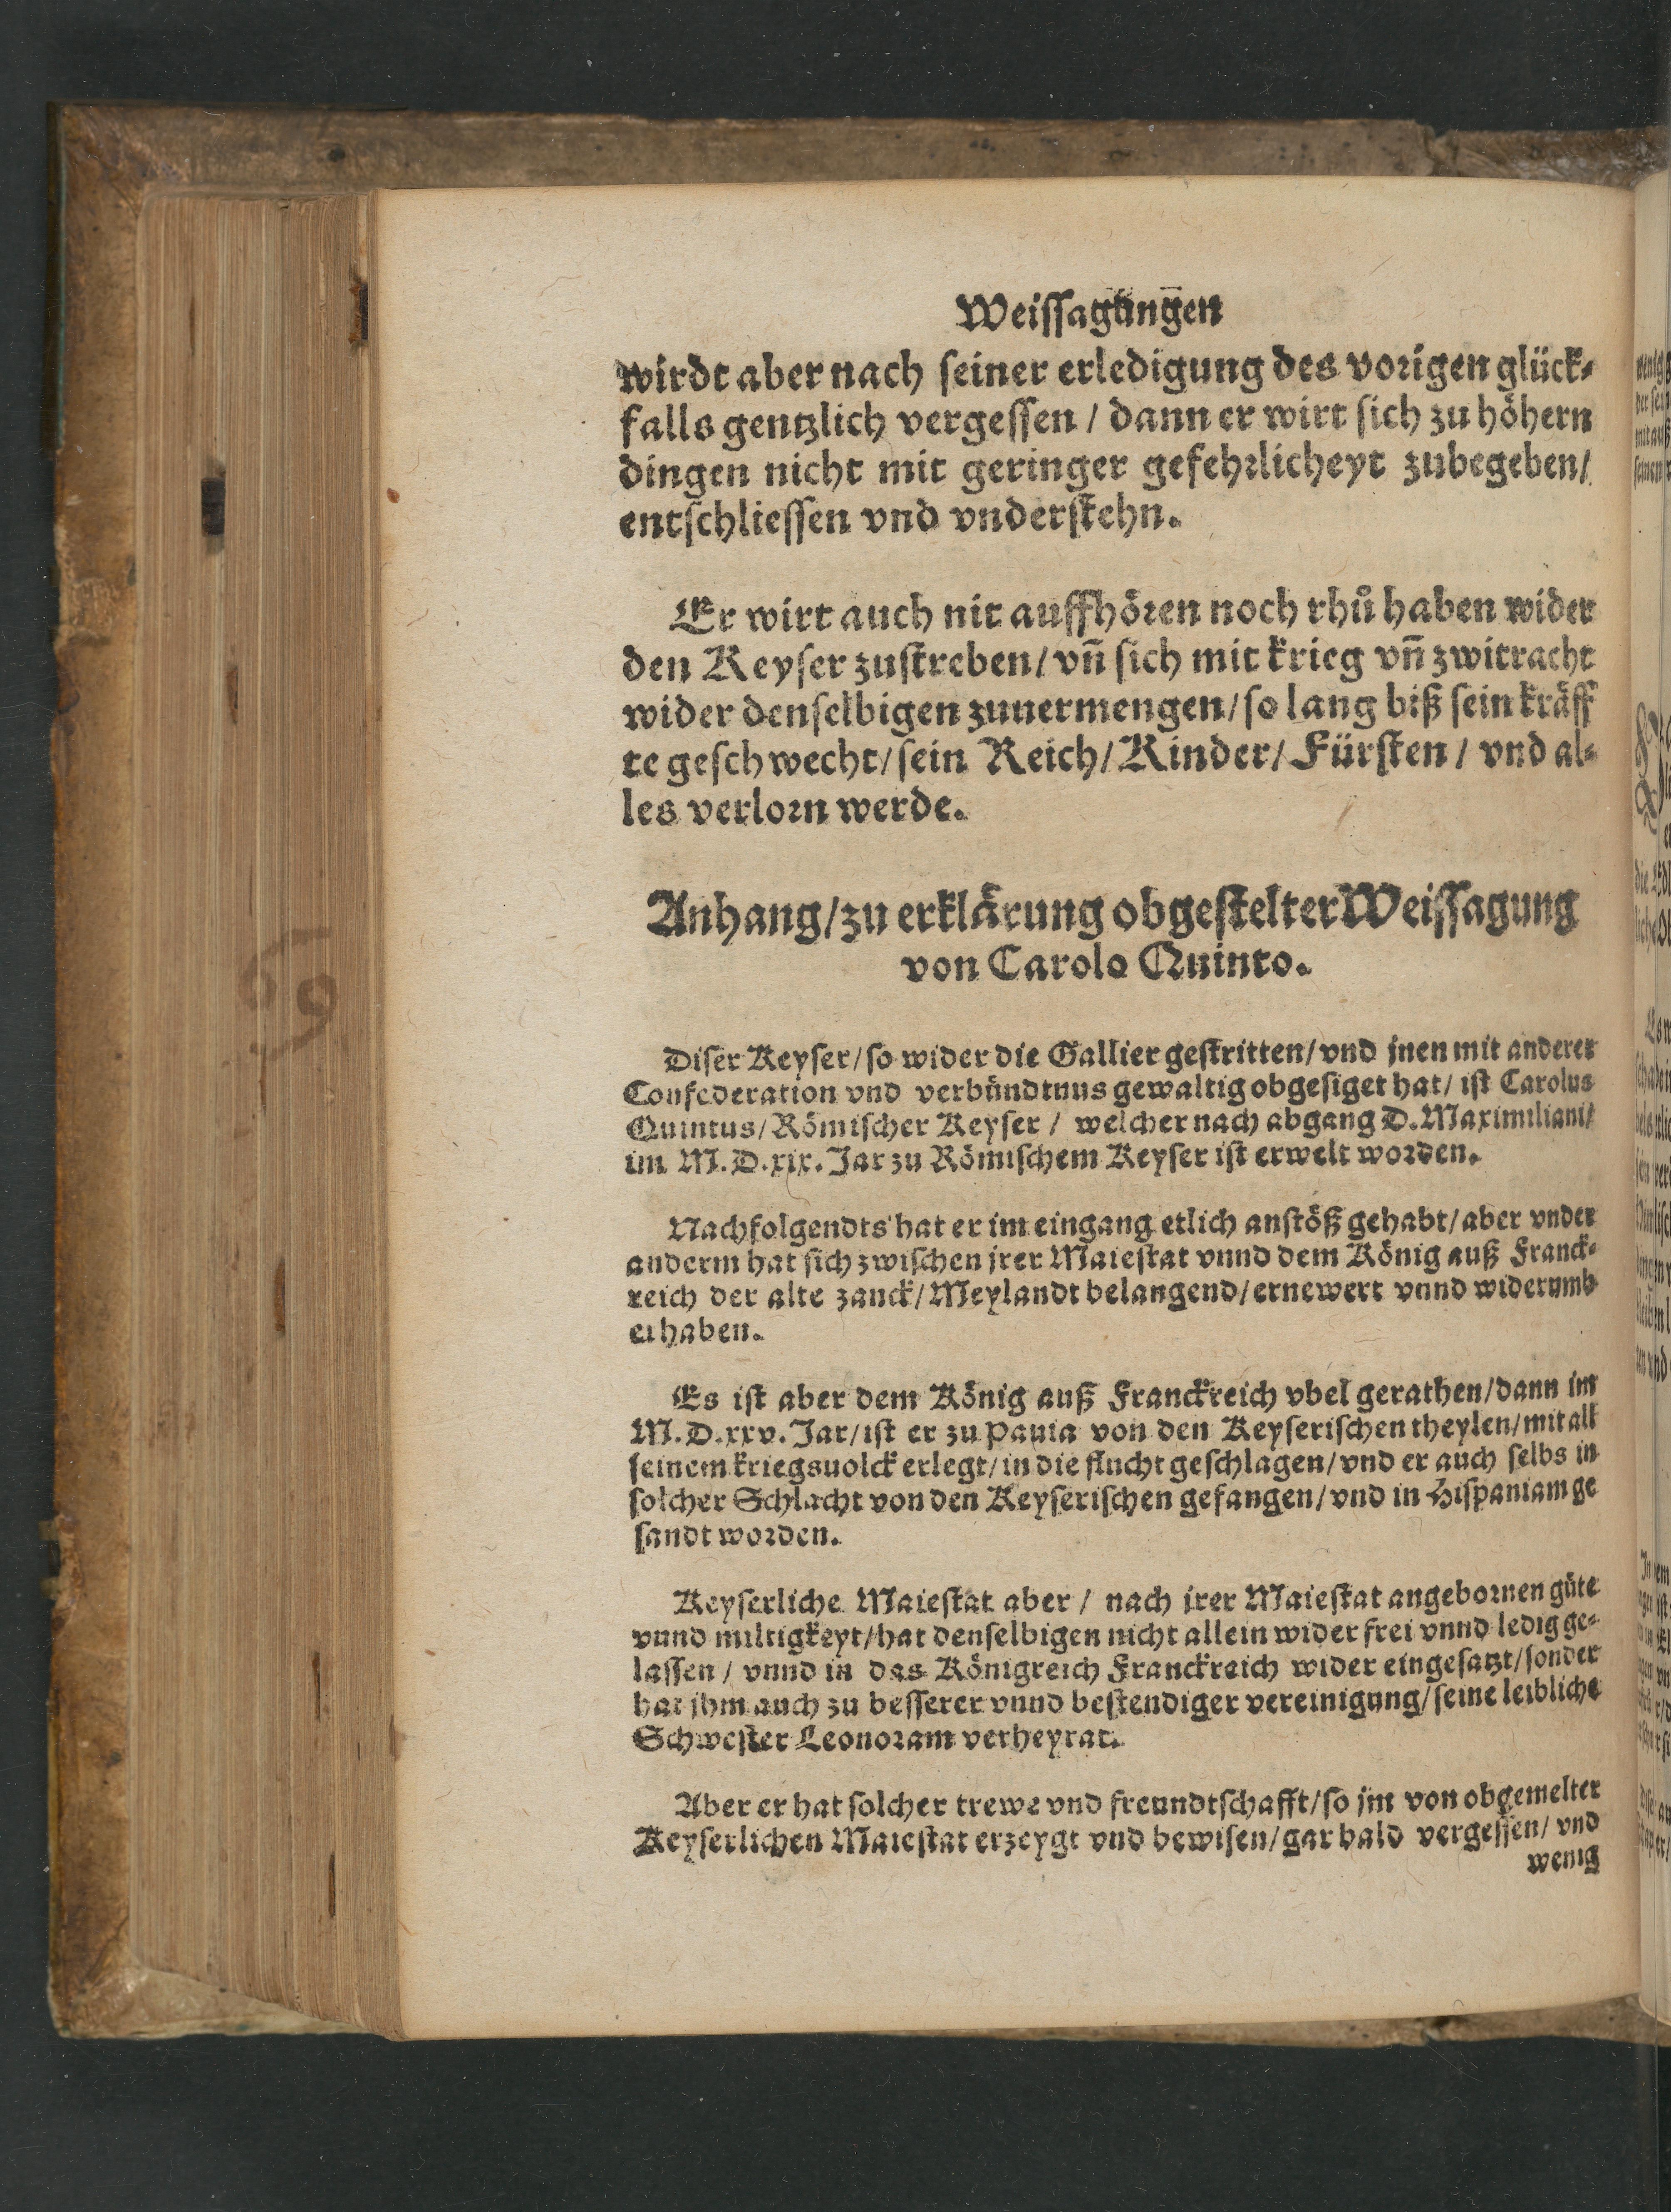 Weiſſagungen
wirdt aber nach ſeiner erledigung des vorigen glück⸗
falls gentzlich vergeſſen / dann er wirt ſich zu höhern
dingen nicht mit geringer gefehrlicheyt zubegeben/
entſchlieſſen vnd vnderſtehn.
Er wirt auch nit auffhören noch rhů haben wider
den Keyſer zuſtreben/ vñ ſich mit krieg vñ zwitracht
wider denſelbigen zuuermengen/ ſo lang biß ſein kräff
te geſchwecht/ ſein Reich/ Kinder/ Fürſten / vnd al⸗
les verlorn werde.
Anhang/ zu erklärung obgeſtelter Weiſſagung
von Carolo Quinto.
Diſer Keyſer/ ſo wider die Gallier geſtritten/ vnd jnen mit anderer
Confederation vnd verbündtnus gewaltig obgeſiget hat/ iſt Carolus
Quintus/ Römiſcher Keyſer / welcher nach abgang D. Maximiliani/
im M. D. xix. Jar zu Römiſchem Keyſer iſt erwelt worden.
Nachfolgendts hat er im eingang etlich anſtöß gehabt/ aber vnder
anderm hat ſich zwiſchen jrer Maieſtat vnnd dem König auß Franck⸗
reich der alte zanck/ Meylandt belangend/ ernewert vnnd widerumb
erhaben.
Es iſt aber dem König auß Franckreich vbel gerathen/ dann im
M. D. xxv. Jar/ iſt er zu Pauia von den Keyſeriſchen theylen/ mit all
ſeinem kriegsuolck erlegt/ in die flucht geſchlagen/ vnd er auch ſelbs in
ſolcher Schlacht von den Keyſeriſchen gefangen/ vnd in Hiſpaniam ge
ſandt worden.
Keyſerliche Maieſtat aber / nach jrer Maieſtat angebornen güte
vnnd miltigkeyt/ hat denſelbigen nicht allein wider frei vnnd ledig ge⸗
laſſen / vnnd in das Königreich Franckreich wider eingeſatzt/ ſonder
hat jhm auch zu beſſerer vnnd beſtendiger vereinigung/ ſeine leibliche
Schweſter Leonoram verheyrat.
Aber er hat ſolcher trewe vnd freundtſchafft/ ſo jm von obgemelter
Keyſerlichen Maieſtat erzeygt vnd bewiſen/ gar bald vergeſſen/ vnd
wenig
69